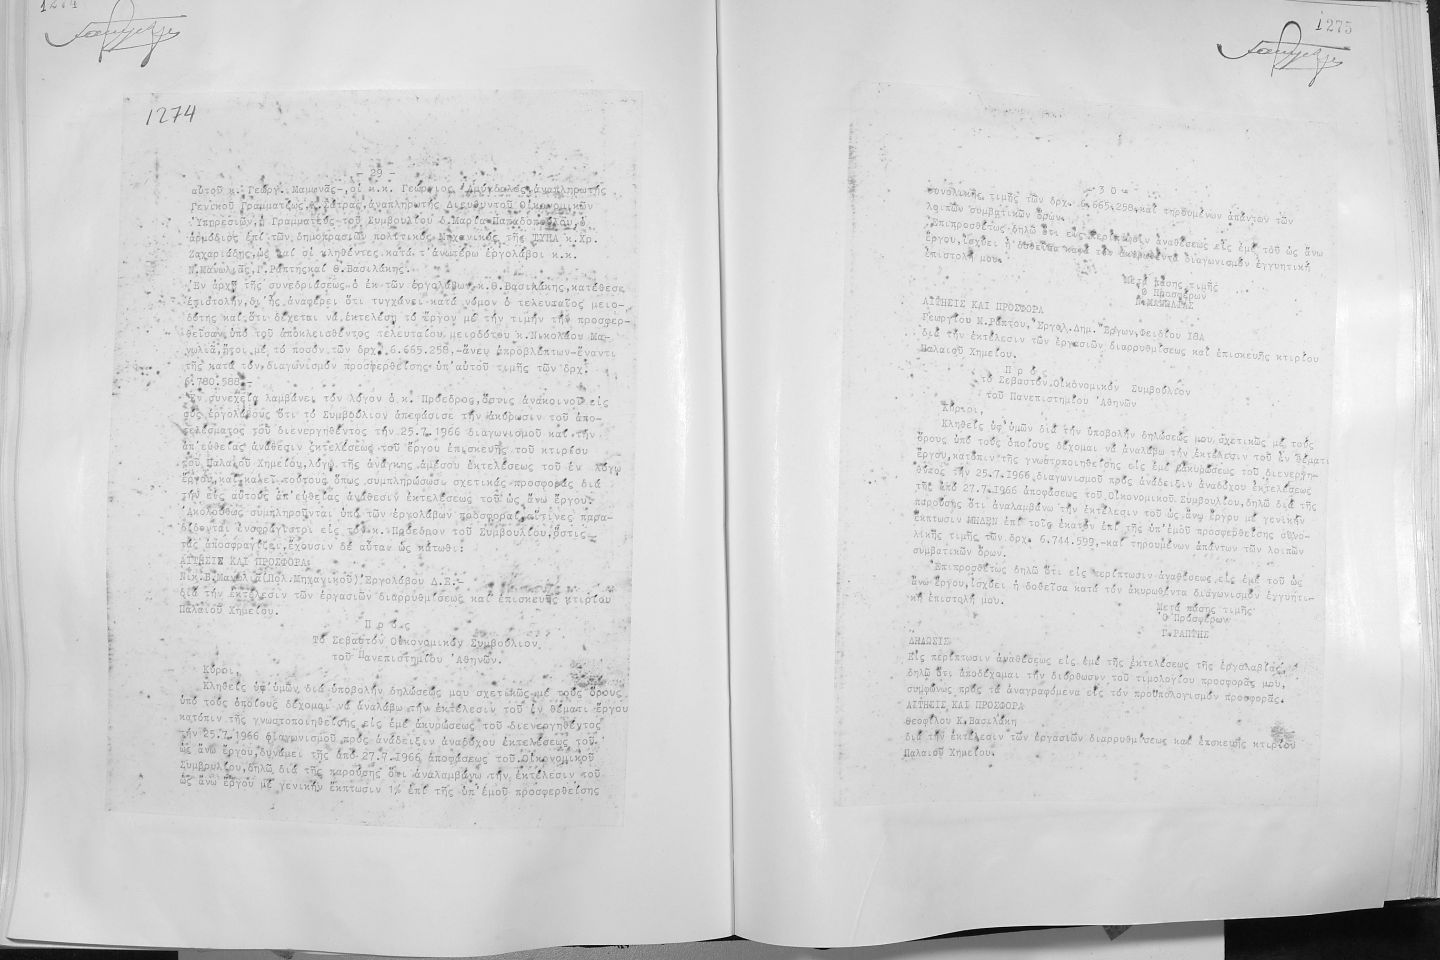 1274
1274
- 29 -
αὐτοῦ κ. Γεωργ. Μαμωνᾶς-,οἱ κ.κ. Γεώργιος Ἀμύγδαλος,ἀναπληρωτής
Γενικοῦ Γραμματέως, ἀναπληρωτής Διευθυντοῦ Οἰκονομικῶν
Ὑπηρεσιῶν,ἡ Γραμματεύς τοῦ Συμβουλίου δ.Μαρία Παπαδοπούλου,ὁ
ἁρμόδιος ἐπί τῶν δημοπρασιῶν πολιτικός Μηχανικός τῆς κ.Χρ.
Ζαχαριάδης,ὡς καί οἱ κληθέντες κατά τ'ἀνωτέρω ἐργολάβοι κ.κ.
Ν.Μανωλιᾶς,Γ.Ράπτης καί Θ.Βασιλάκης.
Ἐν ἀρχῇ τῆς συνεδριάσεως ὁ ἐκ τῶν ἐργολάβων κ.Θ.Βασιλάκης,κατέθεσε
ἐπιστολήν,δι'ἧς ἀναφέρει ὅτι τυγχάνει κατά νόμον ὁ τελευταῖος μειο-
δότης καί ὅτι δέχεται νά ἐκτελέσῃ τό ἔργον μέ τήν τιμήν τήν προσφερ-
θεῖσαν ὑπό τοῦ ἀποκλεισθέντος τελευταίου μειοδότου κ.Νικολάου Μα-
νωλιᾶ,ἤτοι μέ τό ποσόν τῶν δρχ. 6.665.258,-ἄνευ ἀπροβλέπτων-ἔναντι
τῆς κατά τόν διαγωνισμόν προσφερθείσης ὑπ'αὐτοῦ τιμῆς τῶν δρχ.
6.780.588.-
Ἐν συνεχείᾳ λαμβάνει τόν λόγον ὁ κ. Πρόεδρος,ὅστις ἀνακοινοῖ εἰς
τούς ἐργολάβους ὅτι τό Συμβούλιον ἀπεφάσισε τήν ἀκύρωσιν τοῦ ἀπο-
τελέσματος τοῦ διενεργηθέντος τήν 25.7.1966 διαγωνισμοῦ καί τήν
ἀπ'εὐθείας ἀνάθεσιν ἐκτελέσεως τοῦ ἔργου ἐπισκευῆς τοῦ κτιρίου
τοῦ Παλαιοῦ Χημείου,λόγῳ τῆς ἀνάγκης ἀμέσου ἐκτελέσεως τοῦ ἐν λόγῳ
ἔργου,καί καλεῖ τούτους ὅπως συμπληρώσωσι σχετικάς προσφοράς διά
τήν εἰς αὐτούς ἀπ'εὐθείας ἀνάθεσιν ἐκτελέσεως τοῦ ὡς ἄνω ἔργου.
Ἀκολούθως συμπληροῦνται ὑπό τῶν ἐργολάβων προσφοραί,αἵτινες παρα-
δίδονται ἐνσφράγιστοι εἰς τόν κ. Πρόεδρον τοῦ Συμβουλίου,ὅστις
τάς ἀποσφραγίζει,ἔχουσιν δέ αὗται ὡς κάτωθι:
ΑΙΤΗΣΙΣ ΚΑΙ ΠΡΟΣΦΟΡΑ
Νικ.Β.Μανωλιᾶ(Πολ.Μηχανικοῦ)Ἐργολάβου Δ.Ε.-
διά τήν ἐκτέλεσιν τῶν ἐργασιῶν διαρρυθμίσεως καί ἐπισκευῆς κτιρίου
Παλαιοῦ Χημείου.
Π ρ ό ς
Τό Σεβαστόν Οἰκονομικόν Συμβούλιον
τοῦ Πανεπιστημίου Ἀθηνῶν.
Κύριοι,
Κληθείς ὑφ'ὑμῶν διά ὑποβολήν δηλώσεώς μου σχετικῶς μέ τούς ὅρους
ὑπό τούς ὁποίους δέχομαι νά ἀναλάβω τήν ἐκτέλεσιν τοῦ ἐν θέματι ἔργου
κατόπιν τῆς γνωστοποιηθείσης εἰς ἐμέ ἀκυρώσεως τοῦ διενεργηθέντος
τήν 25.7.1966 διαγωνισμοῦ πρός ἀνάδειξιν ἀναδόχου ἐκτελέσεως τοῦ
ὡς ἄνω ἔργου,δυνάμει τῆς ἀπό 27.7.1966 ἀποφάσεως τοῦ Οἰκονομικοῦ
Συμβουλίου,δηλῶ διά τῆς παρούσης ὅτι ἀναλαμβάνω τήν ἐκτέλεσιν τοῦ
ὡς ἄνω ἔργου μέ γενικήν ἔκπτωσιν 1% ἐπί τῆς ὑπ'ἐμοῦ προσφερθείσης
1275
- 30 -
συνολικῆς τιμῆς τῶν δρχ. 6.665.258,-καί τηρουμένων ἁπάντων τῶν
λοιπῶν συμβατικῶν ὅρων.
Ἐπιπροσθέτως δηλῶ ὅτι εἰς περίπτωσιν ἀναθέσεως εἰς ἐμέ τοῦ ὡς ἄνω
ἔργου,ἰσχύει ἡ δοθεῖσα κατά τόν ἀκυρωθέντα διαγωνισμόν ἐγγυητική
ἐπιστολή μου.
Μετά πάσης τιμῆς
Ὁ Προσφέρων
Ν.ΜΑΝΩΛΙΑΣ
ΑΙΤΗΣΙΣ ΚΑΙ ΠΡΟΣΦΟΡΑ
Γεωργίου Μ.Ράπτου,Ἐργολ.Δημ.Ἔργων,Φειδίου 18Α
διά τήν ἐκτέλεσιν τῶν ἐργασιῶν διαρρυθμίσεως καί ἐπισκευῆς κτιρίου
Παλαιοῦ Χημείου.
Π ρ ό ς
τό Σεβαστόν Οἰκονομικόν Συμβούλιον
τοῦ Πανεπιστημίου Ἀθηνῶν
Κύριοι,
Κληθείς ὑφ'ὑμῶν διά τήν ὑποβολήν δηλώσεώς μου σχετικῶς μέ τούς
ὅρους ὑπό τούς ὁποίους δέχομαι νά ἀναλάβω τήν ἐκτέλεσιν τοῦ ἐν θέματι
ἔργου,κατόπιν τῆς γνωστοποιηθείσης εἰς ἐμέ ἀκυρώσεως τοῦ διενεργη-
θέντος τήν 25.7.1966 διαγωνισμοῦ πρός ἀνάδειξιν ἀναδόχου ἐκτελέσεως
τῆς ἀπό 27.7.1966 ἀποφάσεως τοῦ Οἰκονομικοῦ Συμβουλίου,δηλῶ διά τῆς
παρούσης ὅτι ἀναλαμβάνω τήν ἐκτέλεσιν τοῦ ὡς ἄνω ἔργου μέ γενικήν
ἔκπτωσιν ΜΗΔΕΝ ἐπί τοῖς ἑκατόν ἐπί τῆς ὑπ'ἐμοῦ προσφερθείσης συνο-
λικῆς τιμῆς τῶν δρχ. 6.744.599,-καί τηρουμένων ἁπάντων τῶν λοιπῶν
συμβατικῶν ὅρων.
Ἐπιπροσθέτως δηλῶ ὅτι εἰς περίπτωσιν ἀναθέσεως εἰς ἐμέ τοῦ ὡς
ἄνω ἔργου,ἰσχύει ἡ δοθεῖσα κατά τόν ἀκυρωθέντα διαγωνισμόν ἐγγυητι-
κή ἐπιστολή μου.
Μετά πάσης τιμῆς
Ὁ Προσφέρων
Γ.ΡΑΠΤΗΣ
ΔΗΛΩΣΙΣ
Εἰς περίπτωσιν ἀναθέσεως εἰς ἐμέ τῆς ἐκτελέσεως τῆς ἐργολαβίας,
δηλῶ ὅτι ἀποδέχομαι τήν διόρθωσιν τοῦ τιμολογίου προσφορᾶς μου,
συμφώνως πρός τά ἀναγραφόμενα εἰς τόν προϋπολογισμόν προσφορᾶς.
ΑΙΤΗΣΙΣ ΚΑΙ ΠΡΟΣΦΟΡΑ
Θεοφίλου Κ.Βασιλάκη
διά τήν ἐκτέλεσιν τῶν ἐργασιῶν διαρρυθμίσεως καί ἐπισκευῆς κτιρίου
Παλαιοῦ Χημείου.